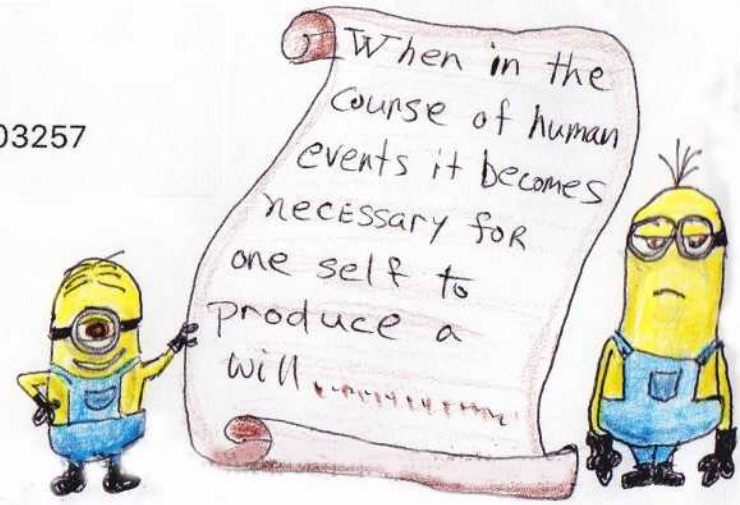 03257
When in the
course of human
events it becomes
necEssary foR
one self to
produce a
will..............